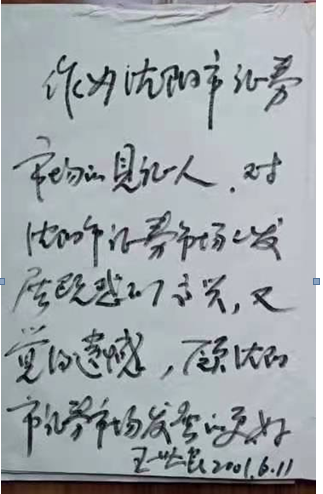 作为沈阳市证券
市场的见证人，对
沈阳市证券市场的发
展既感到高兴，又
觉得遗憾，愿沈阳
市证券市场发展的更好
王 2001.6.11